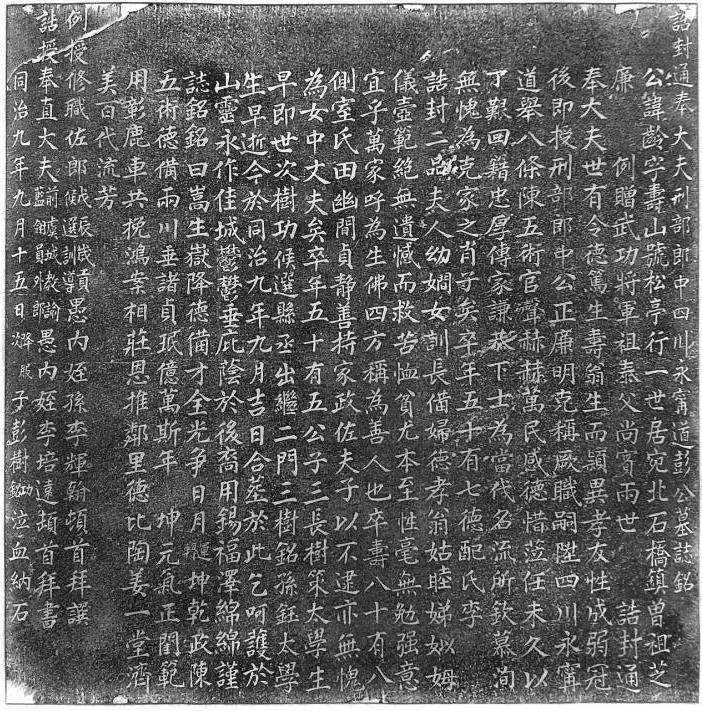 誥封通奉大夫刑部郎中四川永甯道彭公墓誌銘
公諱齡字壽山號松亭行一世居宛北石橋鎮曽祖芝
廉　例贈武功將軍祖泰父尚賓兩世　誥封通
奉大夫世有令德篤生壽翁生而頴異孝友性成弱冠
後即授刑部郎中公正廉明克稱厥職嗣陞四川永甯
道舉八條陳五術官聲赫赫萬民感德惜蒞任未久以
丁艱回籍忠厚傳家謙恭下士為當代名流所欽慕洵
無愧為克家之肖子矣卒年五十有七德配氏李
誥封二品夫人幼嫻女訓長備婦德孝翁姑睦娣姒姆
儀壼範絶無遺憾而救苦恤貧尤本至性毫無勉强意
宜乎萬家呼為生佛四方稱為善人也卒壽八十有八
側室氏田幽閒貞静善持家政佐夫子以不逮亦無愧
為女中丈夫矣卒年五十有五公子三長樹策太學生
早即世次樹功候選縣丞出繼二門三樹銘孫鈺太學
生早逝今於同治九年九月吉日合塟於此乞呵護於
山靈永作佳城鬱鬱垂庇蔭於後裔用錫福澤綿綿謹
誌銘銘曰嵩生嶽降德備才全光争日月運轉坤乾政陳
五術德備兩川垂諸貞珉億萬斯年　坤元氣正閫範
用彰鹿車共挽鴻案相莊恩推鄰里德比陶姜一堂濟
美百代流芳
例授修職佐郎戊辰歲貢候選訓導愚内姪孫李輝翰頓首拜譔
誥授奉直大夫前虞城教諭藍翎員外郎愚内姪李培遠頓首拜書
同治九年九月十五日次降服子彭樹功銘泣血納石